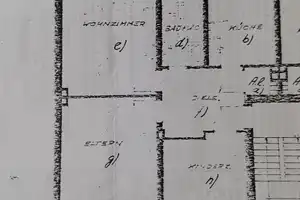 WOHNZIMMER
e)
BAD+WC
d)
KÜCHE
b)
AR
a)
A
DIELE
f)
ELTERN
g)
KINDER 2
h)